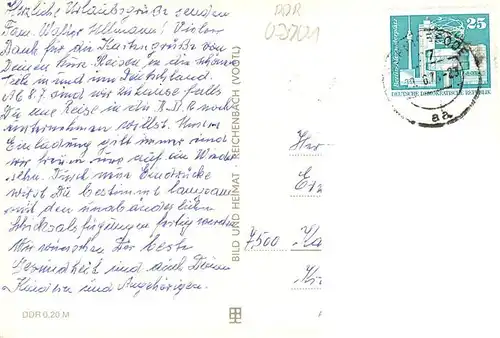 Herzliche Urlaubsgrüße senden
Fam. Walter Ullmann! Vielen
Dank für die Kartengrüße von
Deinen Reisen in die
und im Deutschland.
Ab 8.7. sind wir zuhause falls
Du eine Reise in die D.D.R. noch
unternehmen willst. Unsere
Einladung gilt immer und
wir freuen uns auf ein Wieder
sehn. Durch neue Eindrücke
wirst Du bestimmt langsam
mit den unabänderlichen
Schicksalsfügungen fertig werden
Wir wünschen Dir beste
Gesundheit und auch Deinen
Kindern und Angehörigen.
DDR 0,20 M
BILD UND HEIMAT REICHENBACH (VOGTL)
DDR
25
DEUTSCHE DEMOKRATISCHE REPUBLIK
aa
7500